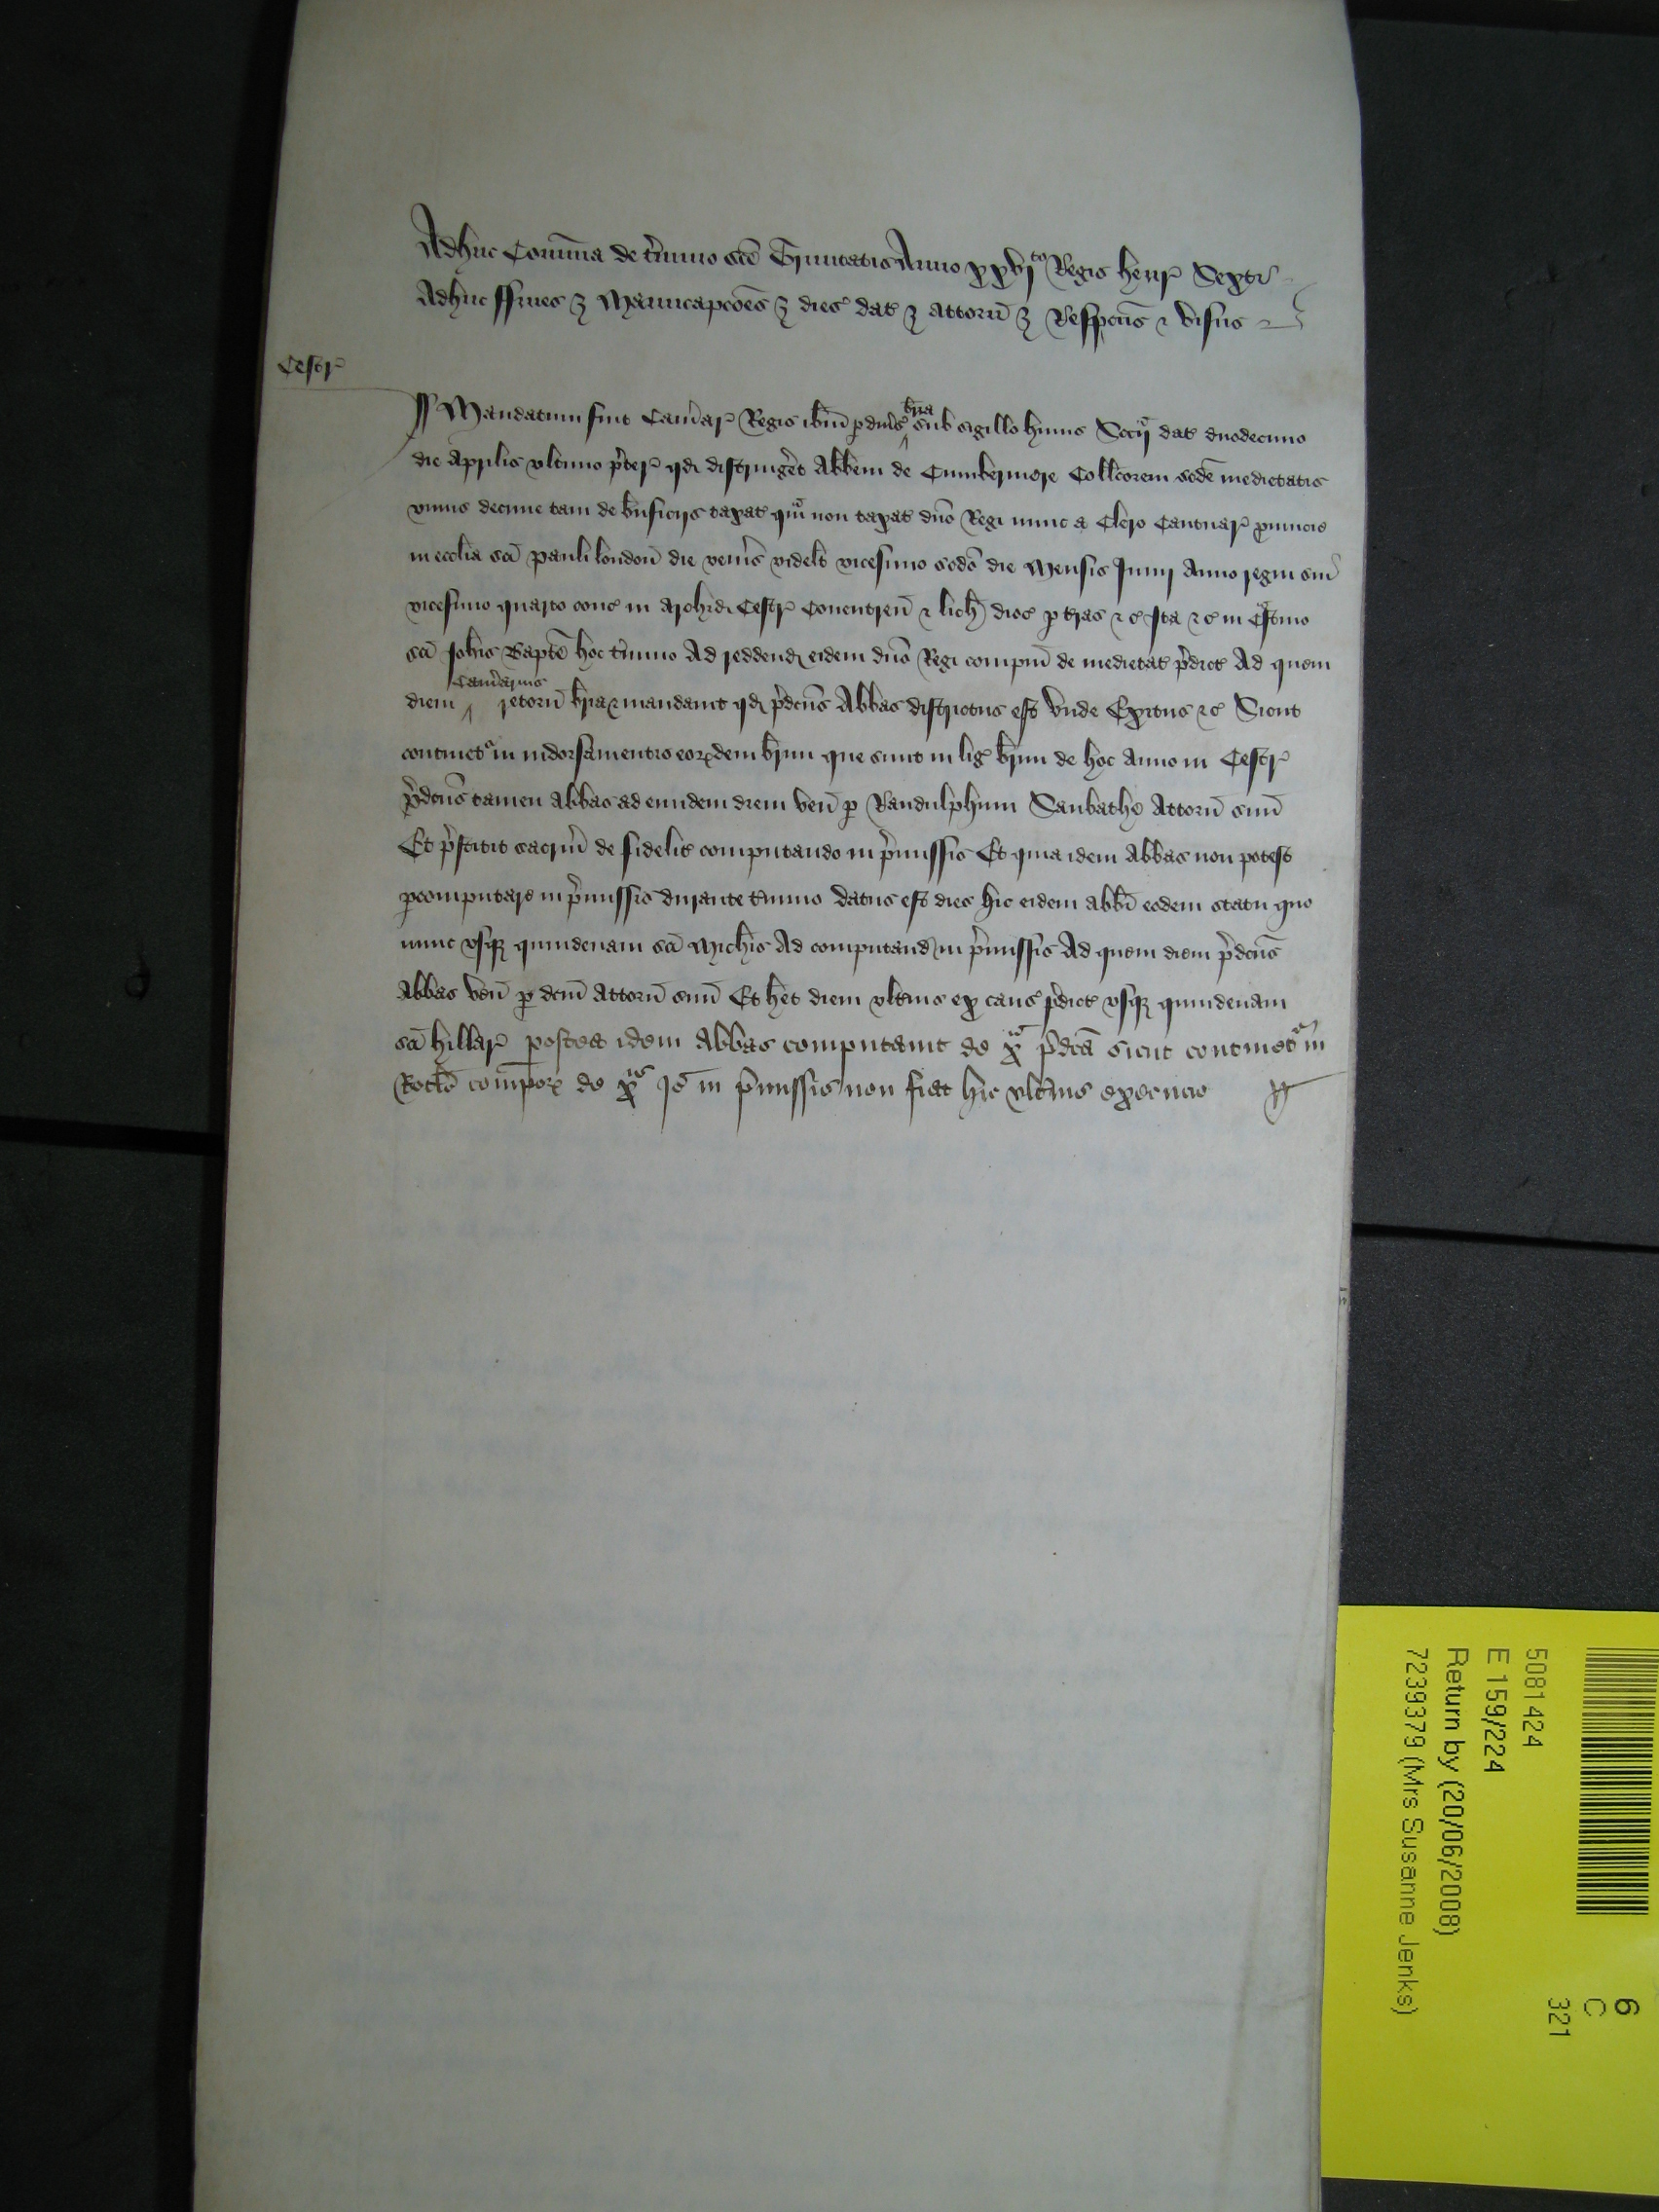 Adhuc Com̄ia de t̄mino sc̄e Trinitatis Anno xxvjto Regis Henr̄ Sexti
Adhuc ffines ⁊ Manucapc̄oes ⁊ dies dat̄ ⁊ Attorn̄ ⁊ Respc̄us ⁊ visus
Cestr̄
Mandatum fuit Cam̄ar̄ Regis ib̄m p diūs br̄ia sub sigillo huius Scc̄ij dat̄ duodecimo
die Aprilis vltimo p̄ter̄ qd̄ distringe̱t Abb̄em de Cumbermere Coll̄corem sc̄de medietatis
vnius decime tam de bn̄ficijs taxat̄ qm̄ non taxat̄ dn̄o Regi nunc a Clero Cantuar̄ ꝓuincie
in eccl̄ia sc̄i Pauli london̄ die ven̄is videl̄t vicesimo sc̄do die Mensis Junij Anno regni sui
vicesimo quarto conc̄ in Archid̄ Cestr̄ Couentren̄ ⁊ lich̄ dioc̄ p l̄ras ⁊c̄ Ita ⁊c̄ in C̄stino
sc̄i Joh̄is Bapt̄e hoc t̄mino Ad reddend̄ eidem dn̄o Regi comp̄m de medietat̄ p̄dict̄ Ad quem
diem Cam̄arius retorn̄ br̄ia ⁊ mandauit qd̄ p̄dc̄us Abbas districtus est vnde Exitus ⁊c̄ Sicut
continet̄ in indorsamentis eorꝝdem br̄ium que sunt in lig̱ br̄ium de hoc Anno in Cestr̄
p̄dc̄us tamen abbas ad eundem diem ven̄ p Randulphum Sanbathe Attorn̄ suū
Et p̄stitit sacrm̄ de fidelit̄ computando in p̄missis Et quia idem Abbas non potest
pcomputare in p̄missis durante t̄mino datus est dies hic eidem abb̄i eodem statu quo
nunc vsqꝫ quindenam sc̄i Mich̄is Ad computand̄ in p̄missis Ad quem diem p̄dc̄us
Abbas ven̄ p dc̄m attorn̄ suū Et h̄et diem vlt̄ius ex caus̄ p̄dict̄ vsqꝫ quindenam
sc̄i hillar̄ postea idem Abbas computauit de xa p̄dc̄a sicut continet̄ in
Rotl̄o compoꝝ de xis Iō in p̄missis non fiat hic vlt̄ius execucio
5081424
E 159/224
Return by (20/06/2008)
7239379 (Mrs Susanne Jenks)
6
C
321